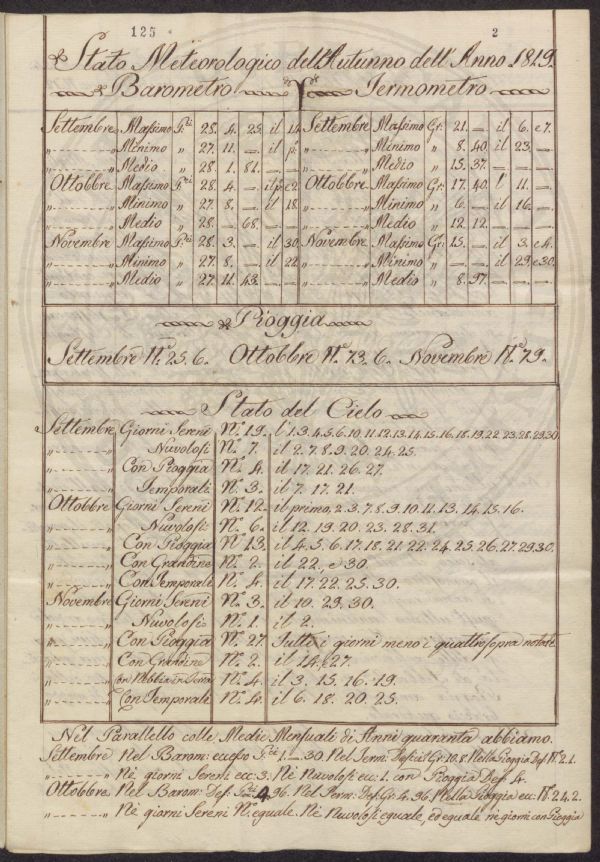 125 2
Stato Meteorologico dell'Autunno dell'Anno 1819.
Barometro Termometro
Settembre Massimo P.ci 28. 4. 25. il 14. Settembre Massimo Gr: 21. — il 6. e 7.
" Minimo " 27. 11. — il p.º " Minimo " 8. 40. il 23. —
" Medio " 28. 1. 81. — " Medio " 15. 37. — —
Ottobbre Massimo P.ci 28. 4. — il p.º e 2. Ottobbre Massimo Gr: 17. 40. l' 11. —
" Minimo " 27. 8. — il 18. " Minimo " 6. — il 16. —
" Medio " 28. — 68. — " Medio " 12. 12. — —
Novembre Massimo P.ci 28. 3. — il 30. Novembre Massimo Gr: 15. — il 3. e 4.
" Minimo " 27. 8. — il 22. " Minimo " — — il 29. e 30.
" Medio " 27. 11. 43. — " Medio " 8. 97. — —
Pioggia
Settembre N.º 25. 6. Ottobbre N.º 73. 6. Novembre N.º 79.
Stato del Cielo
Settembre Giorni Sereni N.º 19. l'1. 3. 4. 5. 6. 10. 11. 12. 13. 14. 15. 16. 18. 19. 22. 23. 28. 29. 30.
" Nuvolosi N.º 7. il 2. 7. 8. 9. 20. 24. 25.
" Con Pioggia N.º 4. il 17. 21. 26. 27.
" Temporali N.º 3. il 7. 17. 21.
Ottobbre Giorni Sereni N.º 12. il primo, 2. 3. 7. 8. 9. 10. 11. 13. 14. 15. 16.
" Nuvolosi N.º 6. il 12. 19. 20. 23. 28. 31.
" Con Pioggia N.º 13. il 4. 5. 6. 17. 18. 21. 22. 24. 25. 26. 27. 29. 30.
" Con Grandine N.º 2. il 22. e 30.
" Con Temporali N.º 4. il 17. 22. 25. 30.
Novembre Giorni Sereni N.º 3. il 10. 29. 30.
" Nuvolosi N.º 1. il 2.
" Con Pioggia N.º 27. Tutti i giorni meno i quattro sopra notati
" Con Grandine N.º 2. il 14. 27.
" Con Nebbia in Terra N.º 4. il 3. 15. 16. 19.
" Con Temporale N.º 4. il 6. 18. 20. 25.
Nel Parallello colle Medie Mensuali di Anni quaranta abbiamo.
Settembre Nel Barom: eccesso P.ci 1. — 30. Nel Term: Deficit Gr: 10.8 Nella Pioggia Def: N.º 2.1.
" Nè giorni Sereni ecc: 3. Nè Nuvolosi ecc: 1. con Pioggia Def: 4.
Ottobbre Nel Barom: Def: 4. 96. Nel Term: Def: Gr: 4. 96. Nella Pioggia ecc: N.º 24. 2.
" Nè giorni Sereni N.º eguale. Nè Nuvolosi eguale, ed eguale nè giorni con Pioggia